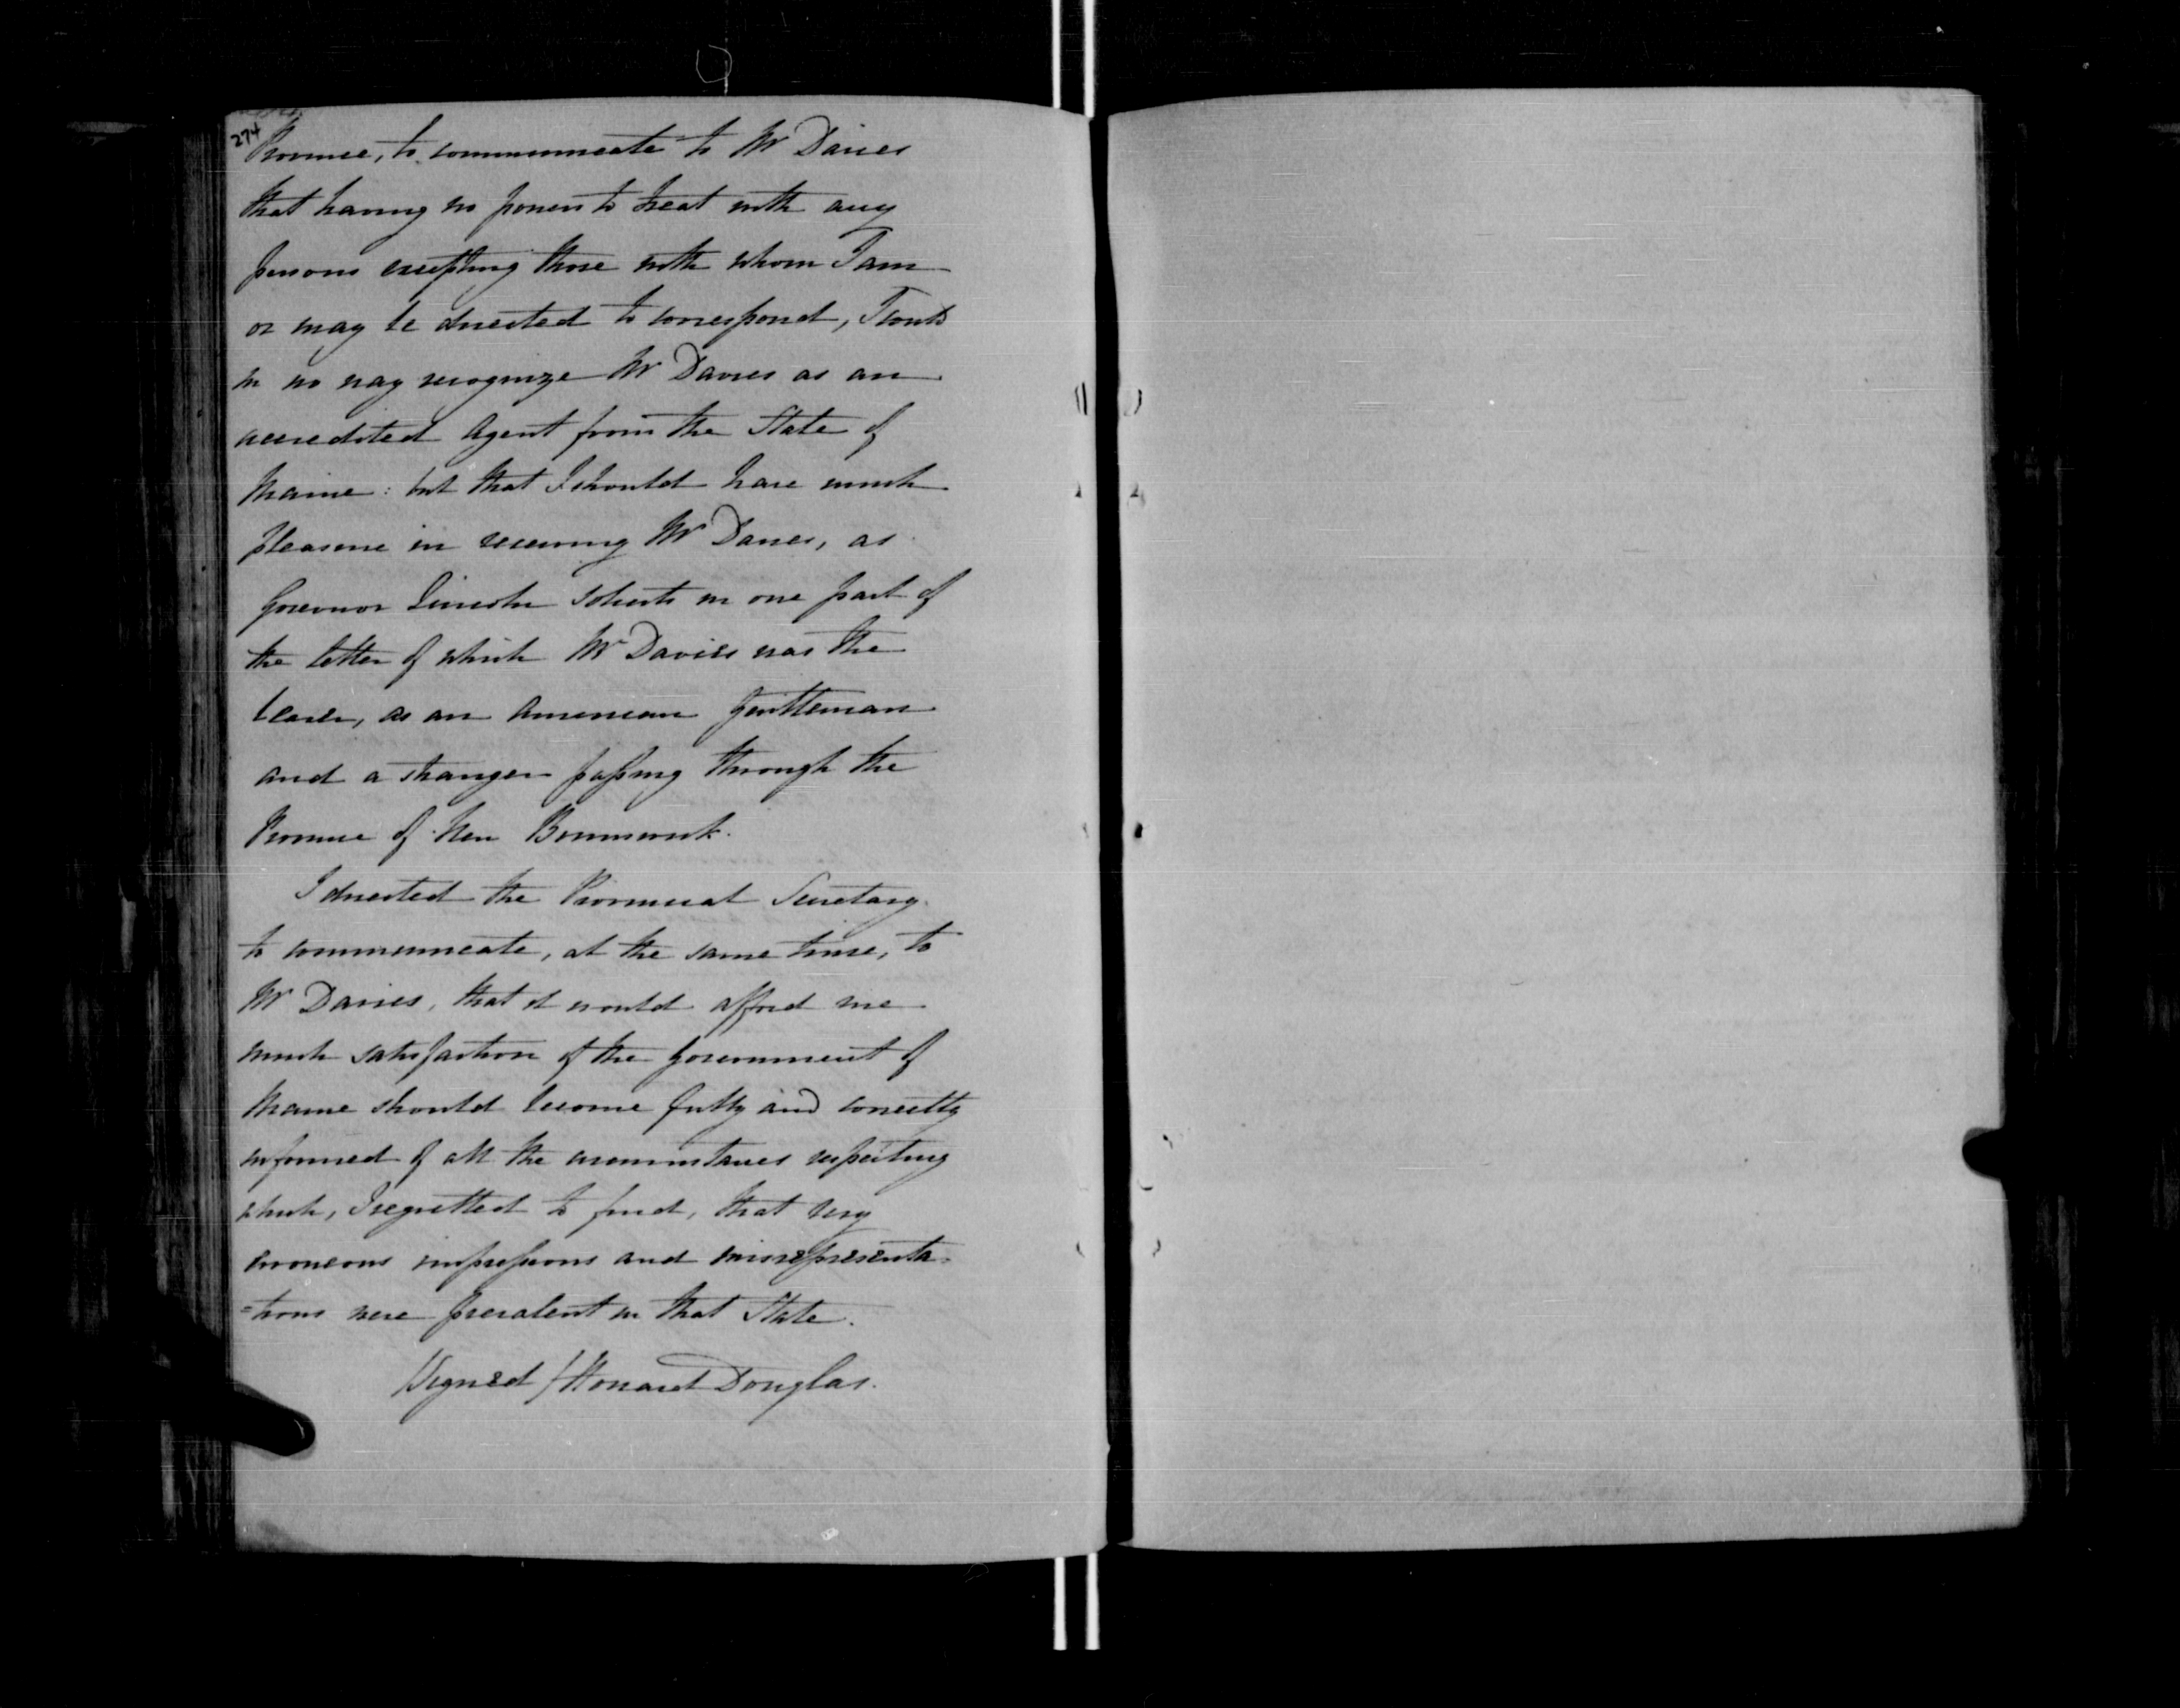 274
Province, to communicate to Mr Davies
that having no power to treat with any
persons excepting those with whom I am
or may be directed to correspond, I could
in no way recognize Mr Davies as an
accredited Agent from the State of
Maine: but that I should have much
pleasure in receiving Mr Davies, as
Governor Lincoln solicits in one part of
the letter of which Mr Davies was the
bearer, as an American Gentleman
and a stranger passing through the
Province of New Brunswick.
I directed the Provincial Secretary
to communicate, at the same time, to
Mr Davies, that it would afford me
much satisfaction if the Government of
Maine should become fully and correctly
informed of all the circumstances respecting
which, I regretted to find, that very
erroneous impressions and misrepresenta-
=tions were prevalent in that State.
/Signed/ Howard Douglas.